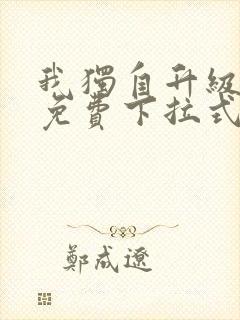 我獨自升級
免費下拉式
鄭成遼